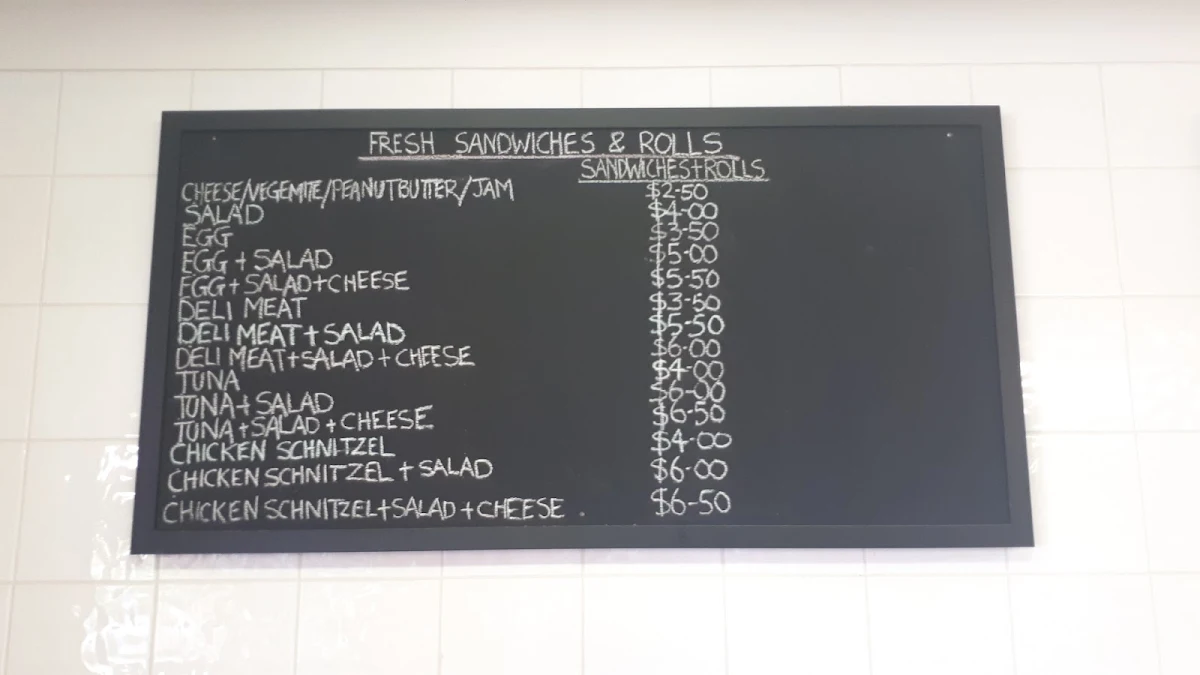 FRESH SANDWICHES & ROLLS
SANDWICHES+ROLLS
CHEESE/VEGEMITE/PEANUTBUTTER/JAM $2-50
SALAD $4-00
EGG $3-50
EGG + SALAD $5-00
EGG + SALAD+CHEESE $5-50
DELI MEAT $3-50
DELI MEAT + SALAD $5-50
DELI MEAT+SALAD + CHEESE $6-00
TUNA $4-00
TUNA + SALAD $6-00
TUNA +SALAD + CHEESE $6-50
CHICKEN SCHNITZEL $4-00
CHICKEN SCHNITZEL + SALAD $6-00
CHICKEN SCHNITZEL+SALAD + CHEESE $6-50